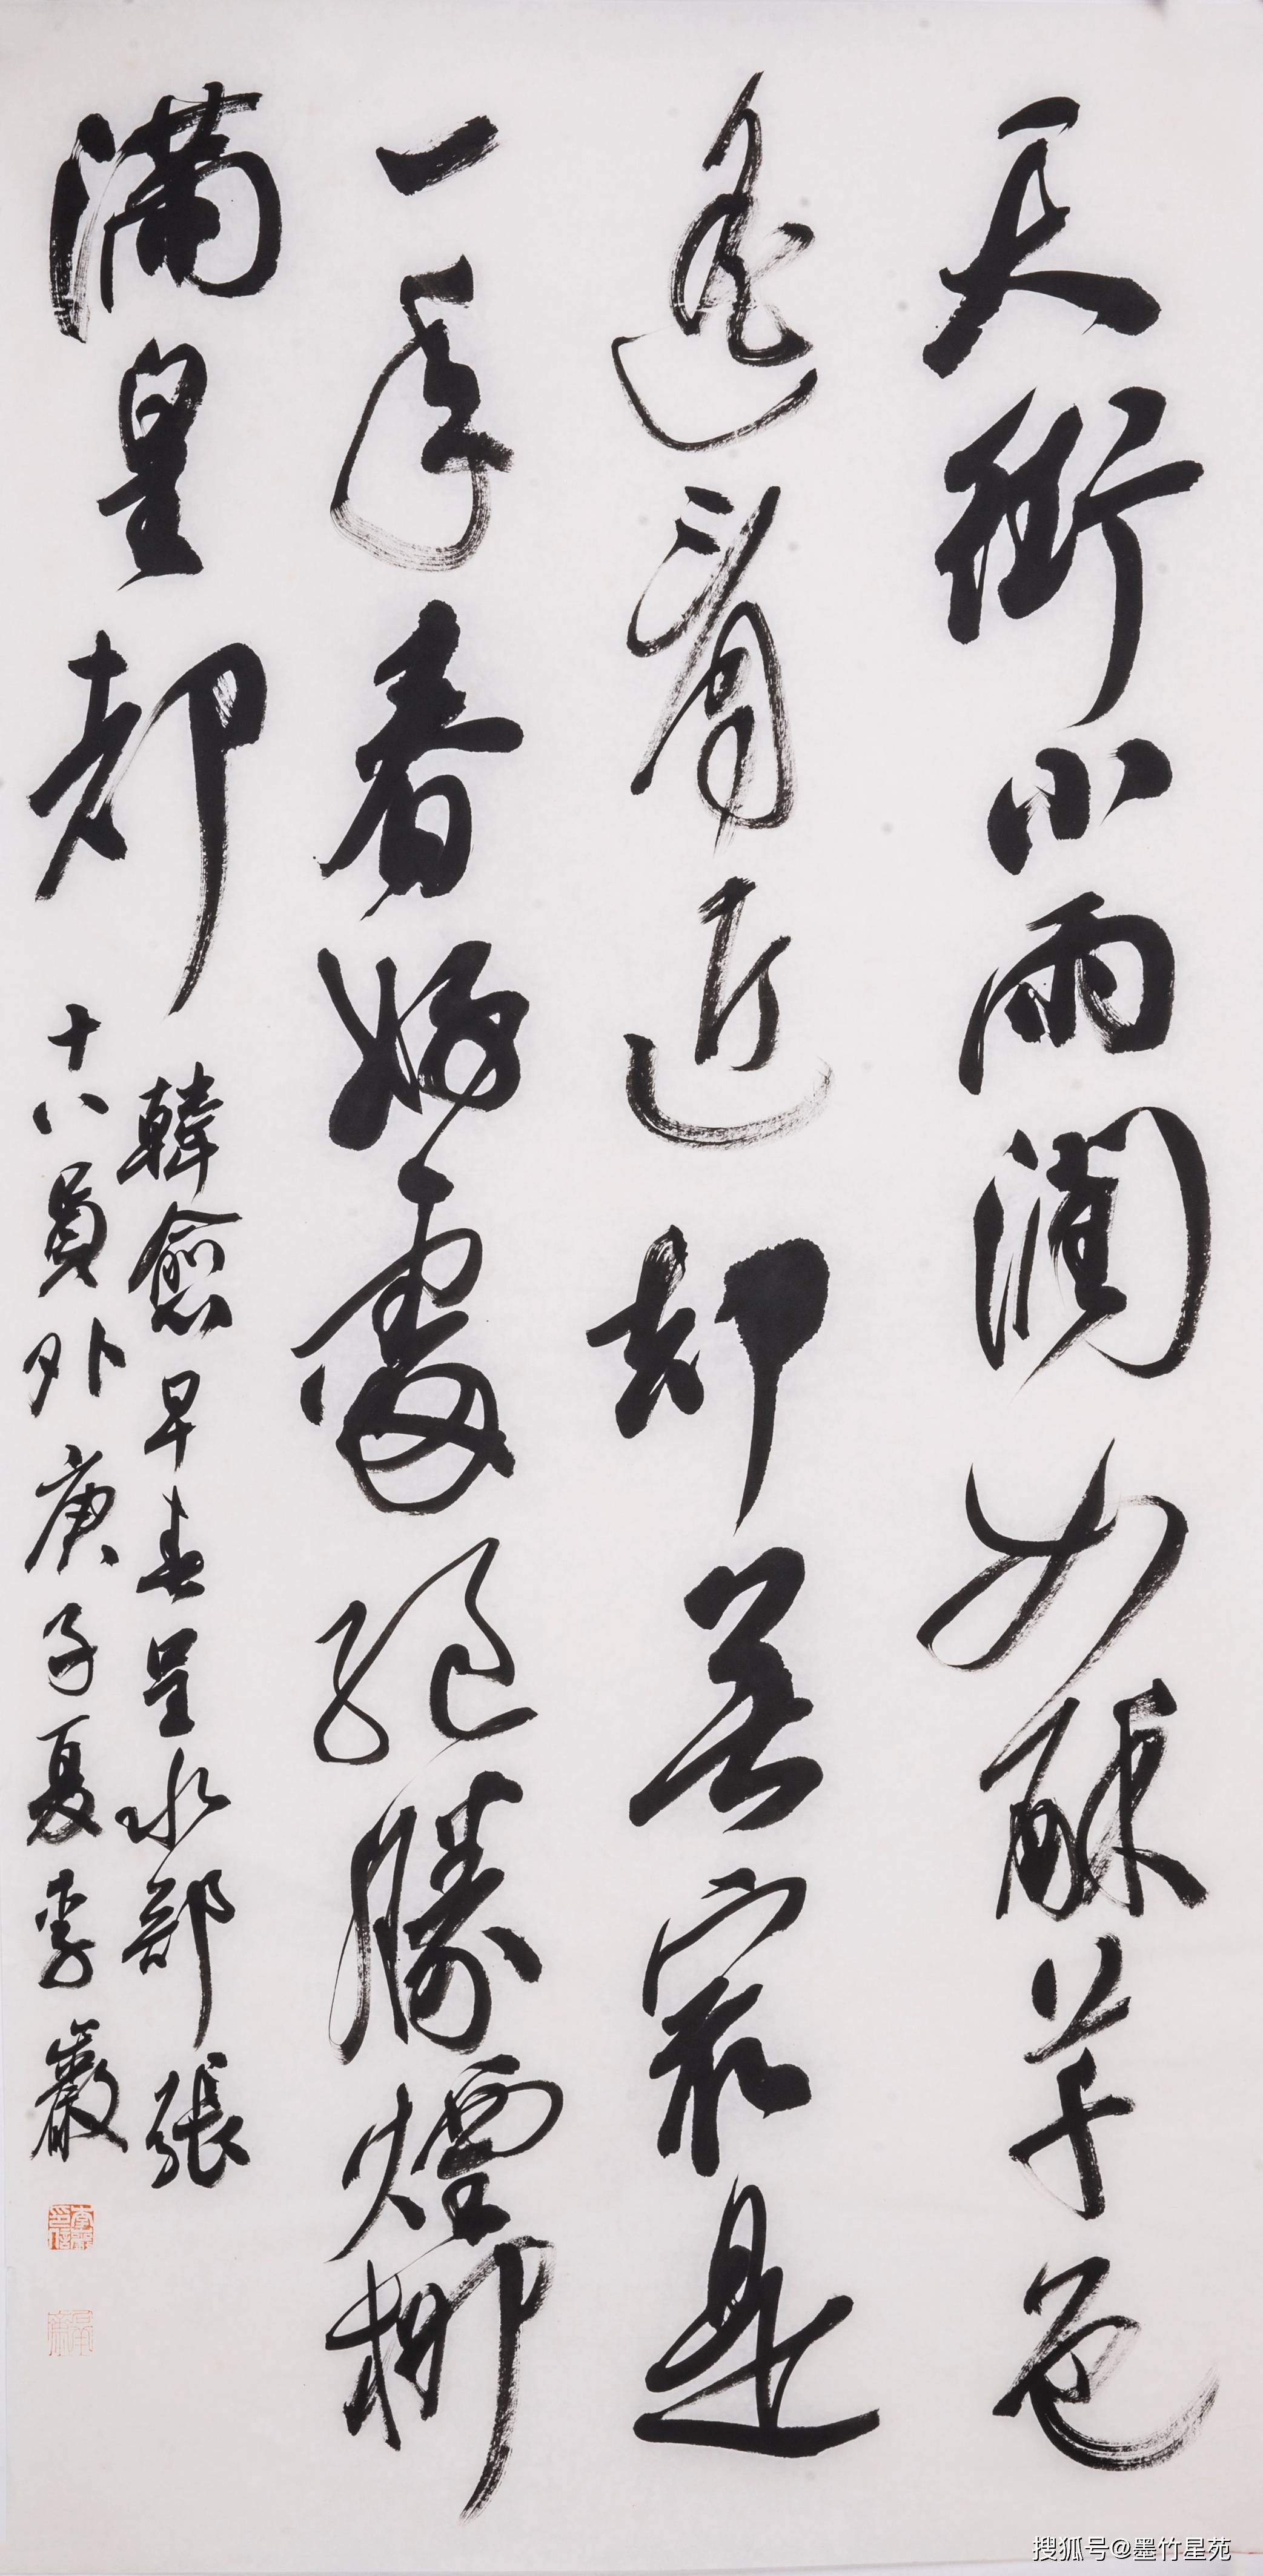 天街小雨潤如酥草色
遙看近却無最是
一年春好處絕勝煙柳
滿皇都
韓愈早春呈水部張
十八員外庚子夏李嚴
搜狐号@墨竹星苑